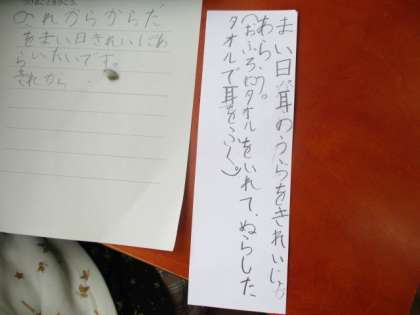 からだ
をまい日きれいにあ
らいたいです。
まい日、耳のうらをきれいに
あらう。
(おふろにタオルをいれて、ぬらした
タオルで耳をふく。)